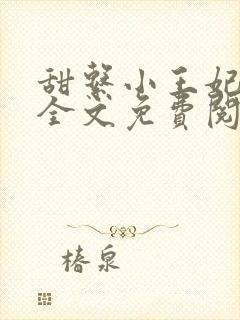 甜繫小王妃
全文免費閱
椿泉